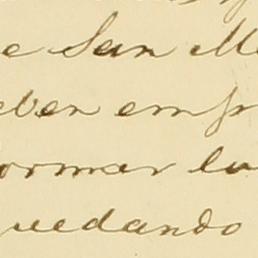 e San M
eben emp
ormar la
uedando